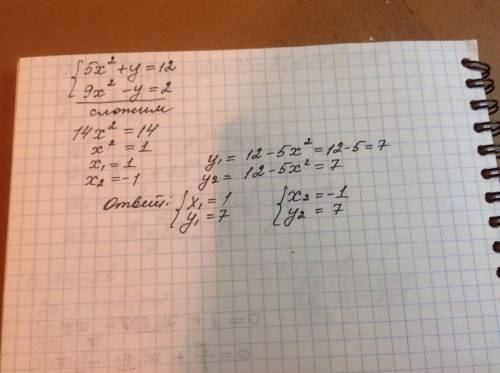 { 5x² + y = 12
9x² - y = 2
сложим
14x² = 14
x² = 1
x₁ = 1
x₂ = -1
y₁ = 12 - 5x² = 12 - 5 = 7
y₂ = 12 - 5x² = 7
ответ: { x₁ = 1
y₁ = 7
{ x₂ = -1
y₂ = 7